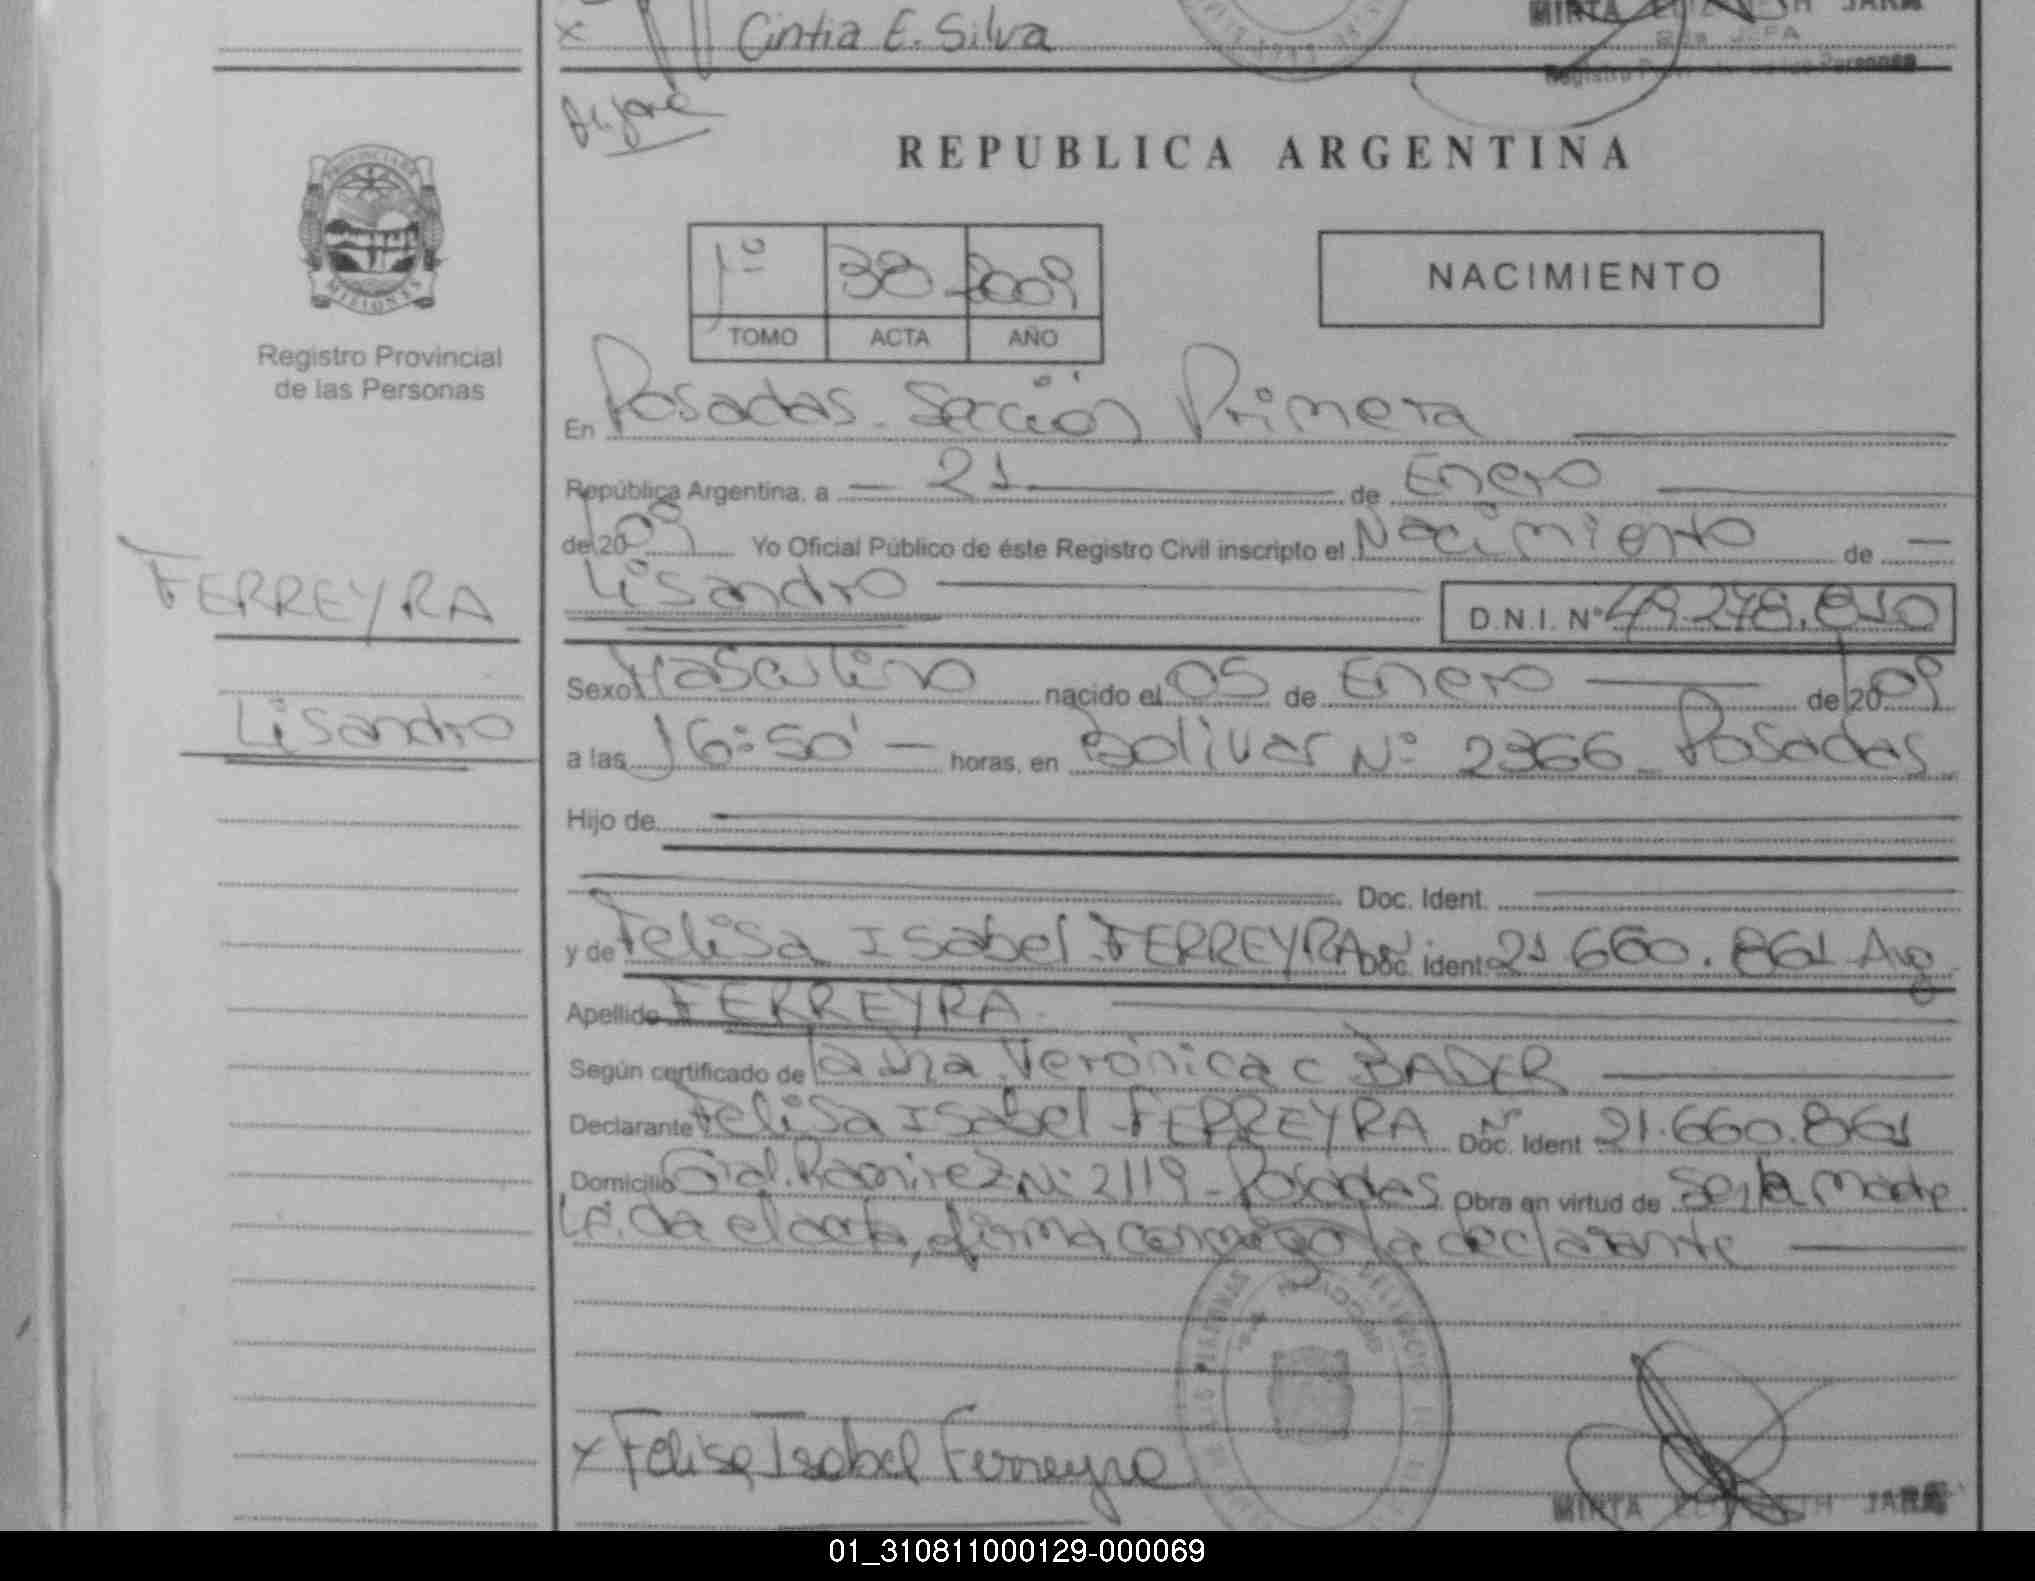 x Cintia E. Silva
MIRTA ELIZABETH JARA
JEFA
REPUBLICA ARGENTINA
PROVINCIA DE
MISIONES
Registro Provincial
de las Personas
1º 38 2009
TOMO ACTA AÑO
NACIMIENTO
En Posadas. Sección Primera
República Argentina, a — 21 — de Enero
de 2009 Yo Oficial Público de éste Registro Civil inscripto el Nacimiento de —
Lisandro D.N.I. Nº 49.278.810
FERREYRA
Lisandro
Sexo Masculino nacido el 05 de Enero — de 2009
a las 16:50' — horas, en Bolivar Nº 2366 - Posadas
Hijo de
Doc. Ident.
y de Felisa Isabel FERREYRA Doc. Ident 21.660.861 Arg
Apellido FERREYRA
Según certificado de la Dra. Verónica C BADER
Declarante Felisa Isabel FERREYRA Nº Doc. Ident 21.660.861
Domicilio Gral. Ramirez Nº 2119 - Posadas Obra en virtud de Ser la madre
Leída el acta, firma conmigo la declarante
x Felisa Isabel Ferreyra
MIRTA ELIZABETH JARA
01_310811000129-000069